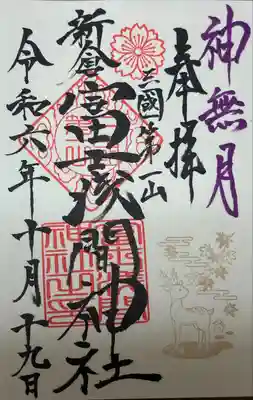 神無月
奉拝
三國第一山
新倉富士浅間神社
令和六年十月十九日